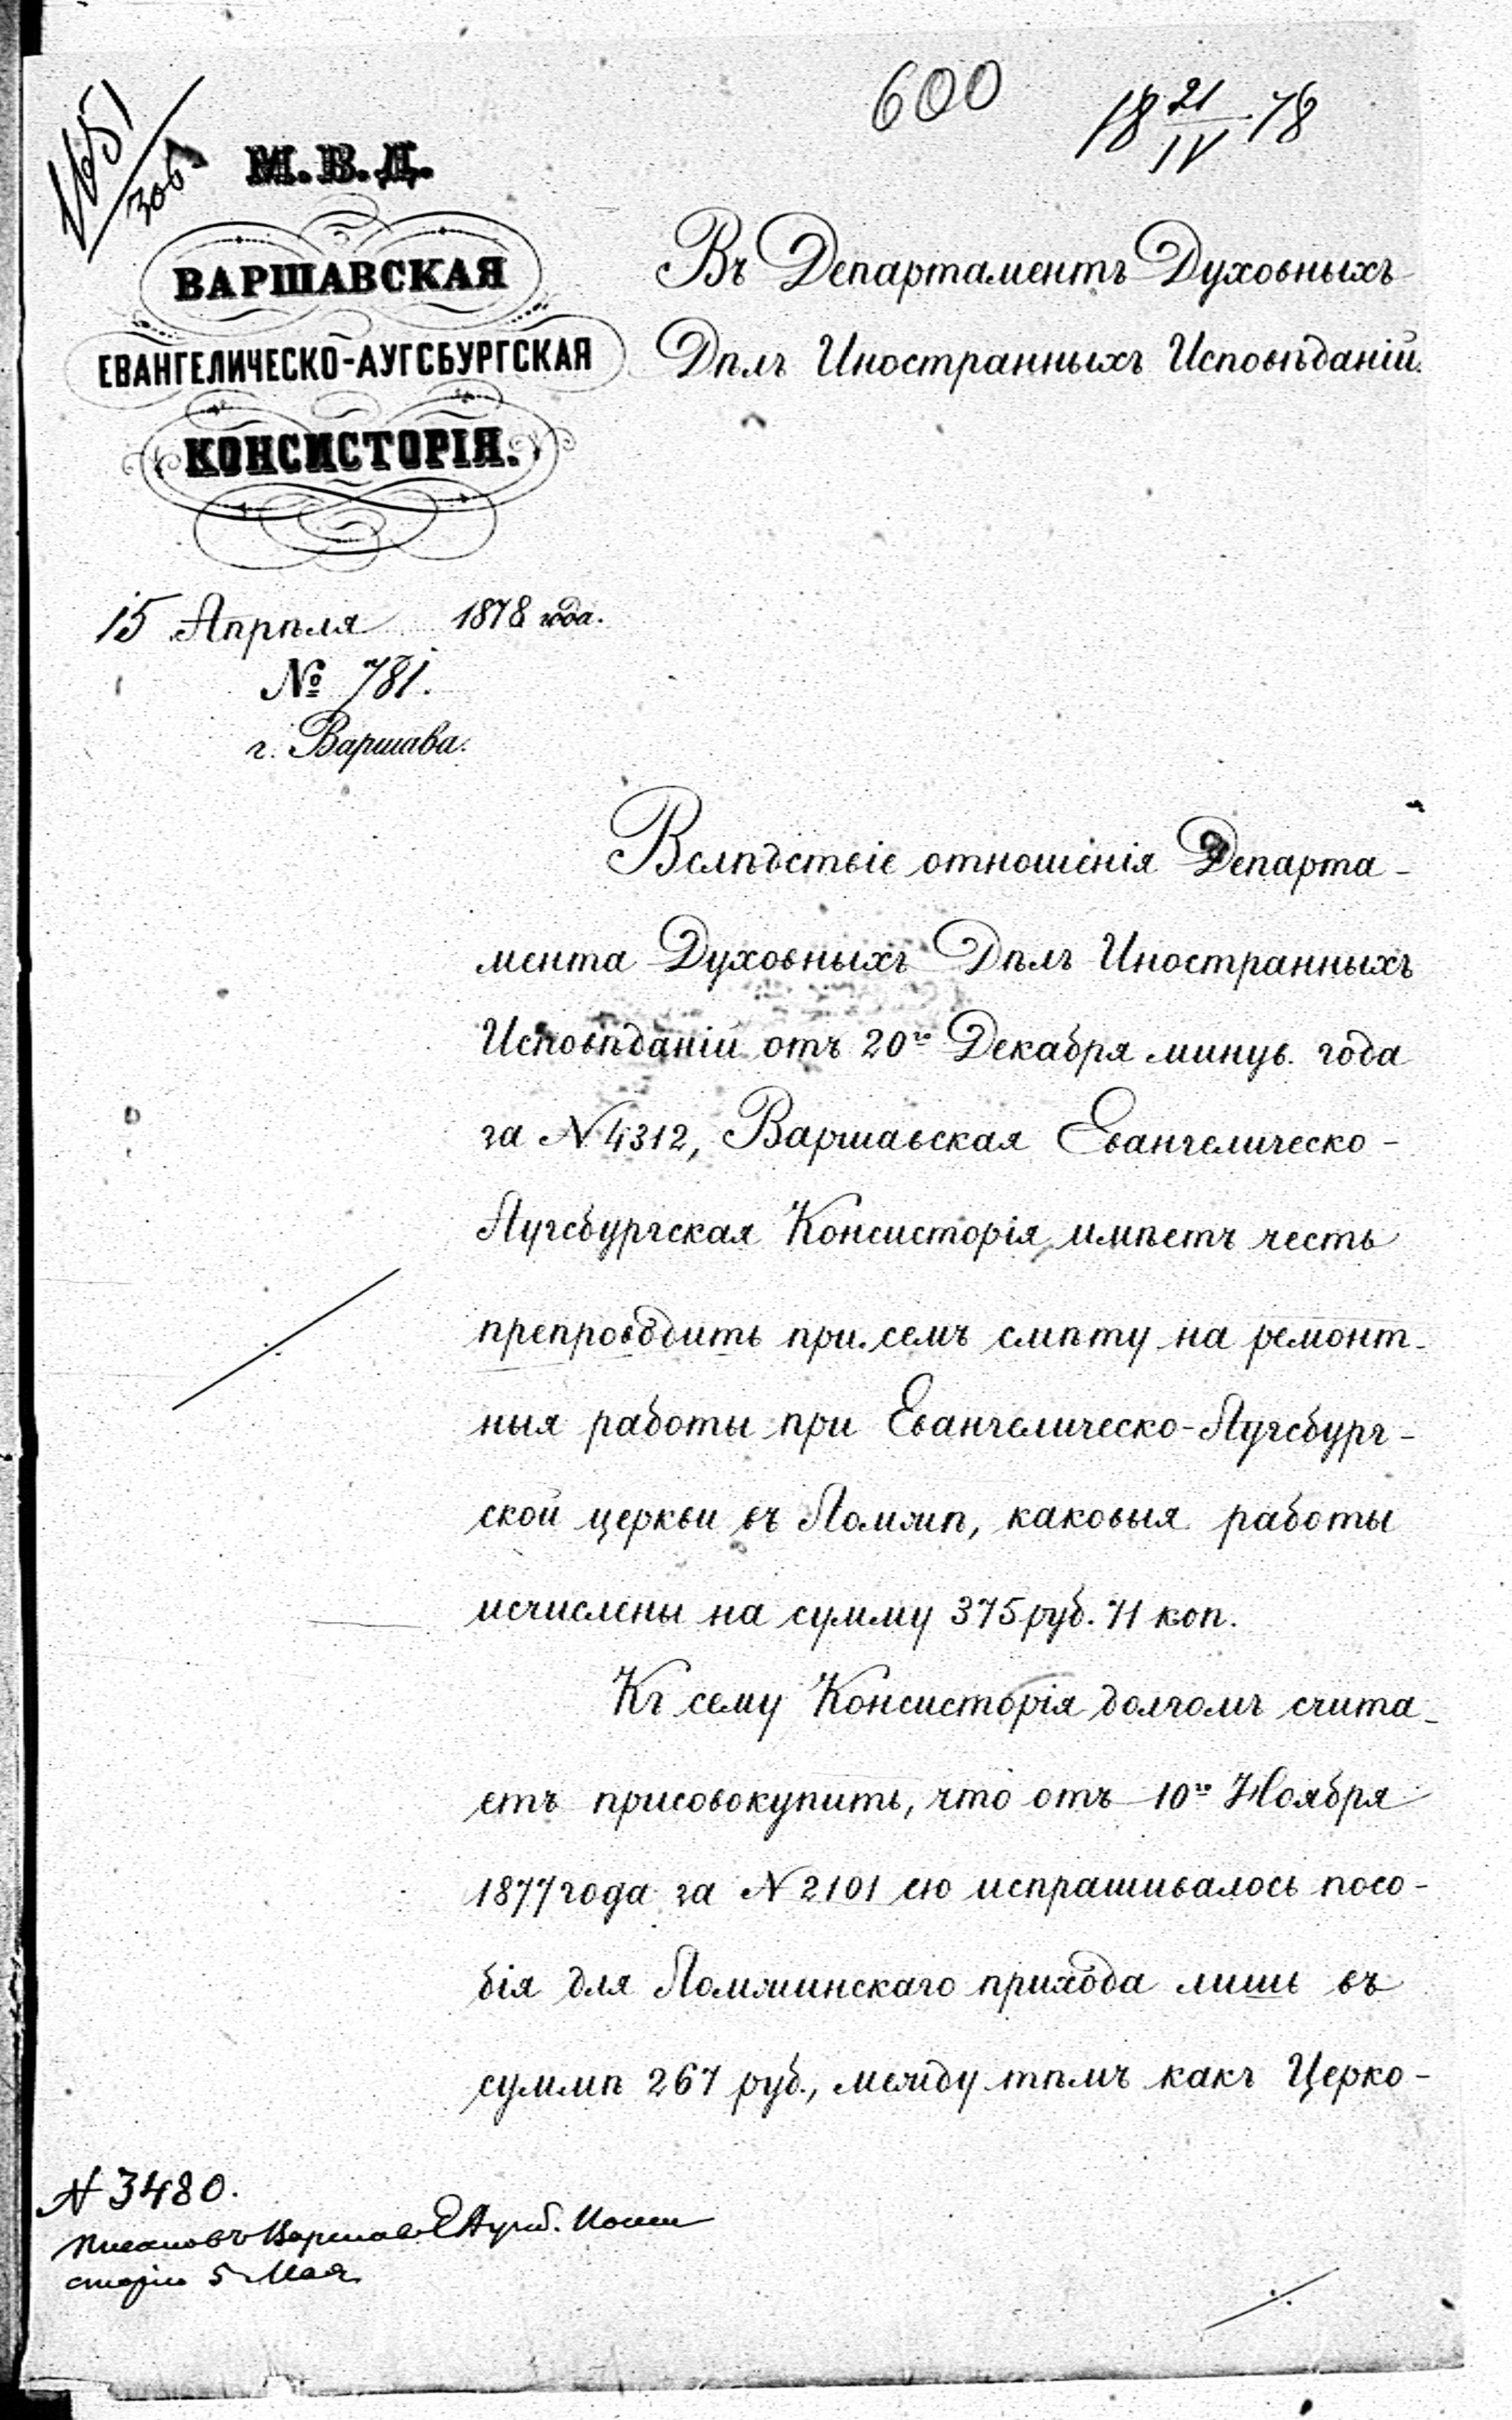 600
18 21/IV 78
1651
М. В. Д.
ВАРШАВСКАЯ
ЕВАНГЕЛИЧЕСКО-АУГСБУРГСКАЯ
КОНСИСТОРІЯ.
15 Апрѣля 1878 года.
№ 781.
г. Варшава.
Въ Департаментъ Духовныхъ
Дѣлъ Иностранныхъ Исповѣданій.
Вслѣдствіе отношенія Департа-
мента Духовныхъ Дѣлъ Иностранныхъ
Исповѣданій отъ 20го Декабря минув. года
за N 4312, Варшавская Евангелическо-
Аугсбургская Консисторія имѣетъ честь
препроводить при семъ смѣту на ремонт-
ныя работы при Евангелическо-Аугсбург-
ской церкви въ Ломжѣ, каковыя работы
исчислены на сумму 375 руб. 71 коп.
Къ сему Консисторія долгомъ счита-
етъ присовокупить, что отъ 10го Ноября
1877 года за N 2101 ею испрашивалось посо-
бія для Ломжинскаго прихода лишь въ
суммѣ 267 руб., между тѣмъ какъ Церко-
N 3480.
Писано въ Варшав. Е Аугсб. Конси
сторію 5 Мая